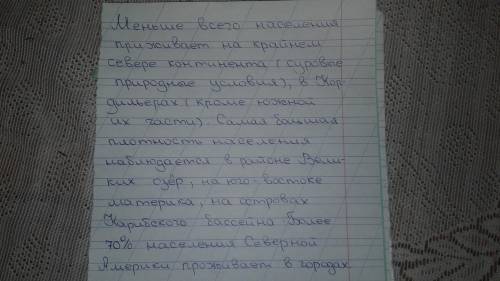 Меньше всего населения
приживает на крайнем
севере континента (суровые
природные условия), в Кор-
дильерах (кроме южной
их части). Самая большая
плотность населения
наблюдается в районе Вели-
ких озёр, на юго-востоке
материка, на островах
Карибского бассейна. Более
70% населения Северной
Америки проживает в городах